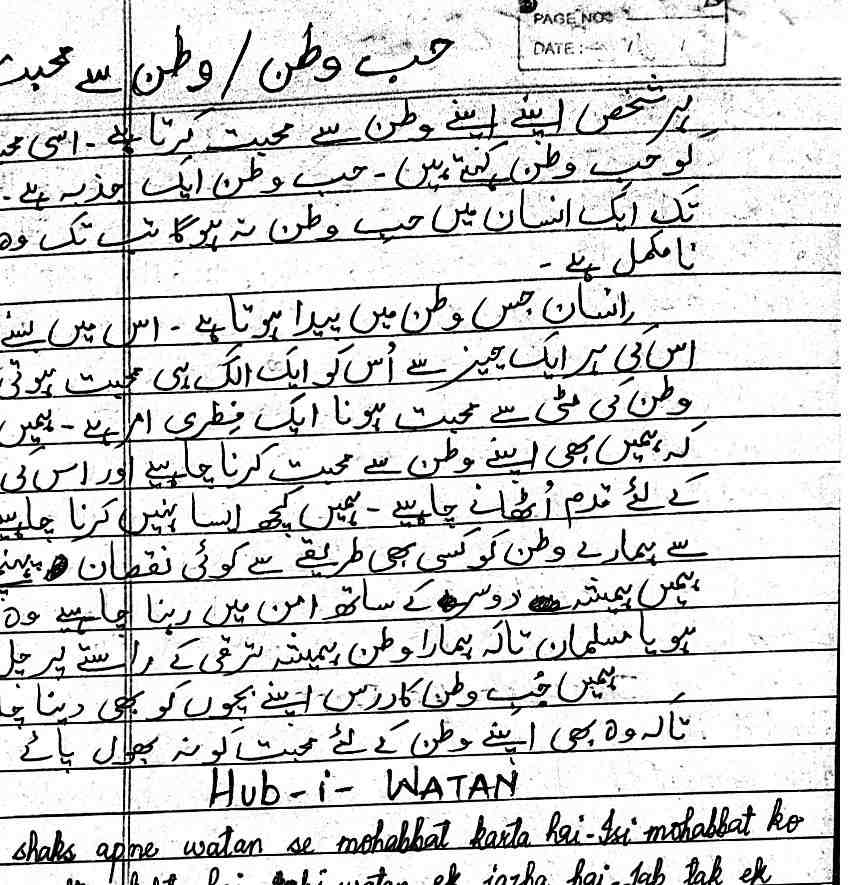 PAGE NO:
DATE: / /
حب وطن / وطن سے محبت
ہر شخص اپنے اپنے وطن سے محبت کرتا ہے - اسی
کو حب وطن کہتے ہیں - حب وطن ایک جذبہ ہے -
تک ایک انسان میں حب وطن نہ ہوگا تب تک وہ
نامکمل ہے -
انسان جس وطن میں پیدا ہوتا ہے - اس میں بسنے
اس کی ہر ایک چیز سے اُس کو ایک الگ ہی محبت ہوتی
وطن کی مٹی سے محبت ہونا ایک فِطری امر ہے - ہمیں
کہ ہمیں بھی اپنے وطن سے محبت کرنا چاہیے اور اس کی
کے لئے قدم اُٹھانے چاہیے - ہمیں کچھ ایسا نہیں کرنا
سے ہمارے وطن کو کسی بھی طریقے سے کوئی نقصان
ہمیں ہمیشہ دوسرے کے ساتھ امن میں رہنا چاہیے وہ
ہو یا مسلمان تاکہ ہمارا وطن ہمیشہ ترقی کے راستے پر
ہمیں حُبِ وطن کا درس اپنے بچوں کو بھی دینا
تاکہ وہ بھی اپنے وطن کے لئے محبت کو نہ بھول پائے
Hub-i- WATAN
shaks apne watan se mohabbat karta hai-Isi mohabbat ko
watan ek jazba hai-Jab tak ek